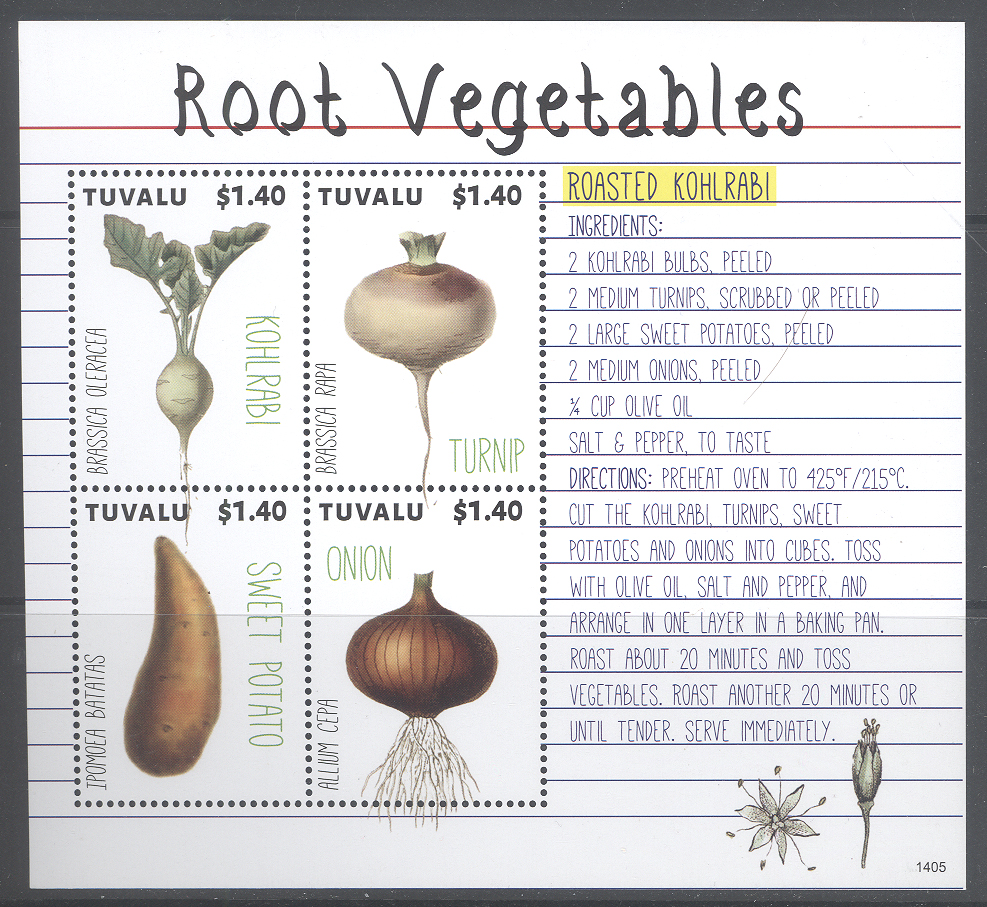 Root Vegetables
TUVALU $1.40
BRASSICA OLERACEA
KOHLRABI
TUVALU $1.40
BRASSICA RAPA
TURNIP
TUVALU $1.40
IPOMOEA BATATAS
SWEET POTATO
TUVALU $1.40
ONION
ALLIUM CEPA
ROASTED KOHLRABI
INGREDIENTS:
2 KOHLRABI BULBS, PEELED
2 MEDIUM TURNIPS, SCRUBBED OR PEELED
2 LARGE SWEET POTATOES, PEELED
2 MEDIUM ONIONS, PEELED
¼ CUP OLIVE OIL
SALT & PEPPER, TO TASTE
DIRECTIONS: PREHEAT OVEN TO 425°F/215°C.
CUT THE KOHLRABI, TURNIPS, SWEET
POTATOES AND ONIONS INTO CUBES. TOSS
WITH OLIVE OIL, SALT AND PEPPER, AND
ARRANGE IN ONE LAYER IN A BAKING PAN.
ROAST ABOUT 20 MINUTES AND TOSS
VEGETABLES. ROAST ANOTHER 20 MINUTES OR
UNTIL TENDER. SERVE IMMEDIATELY.
1405